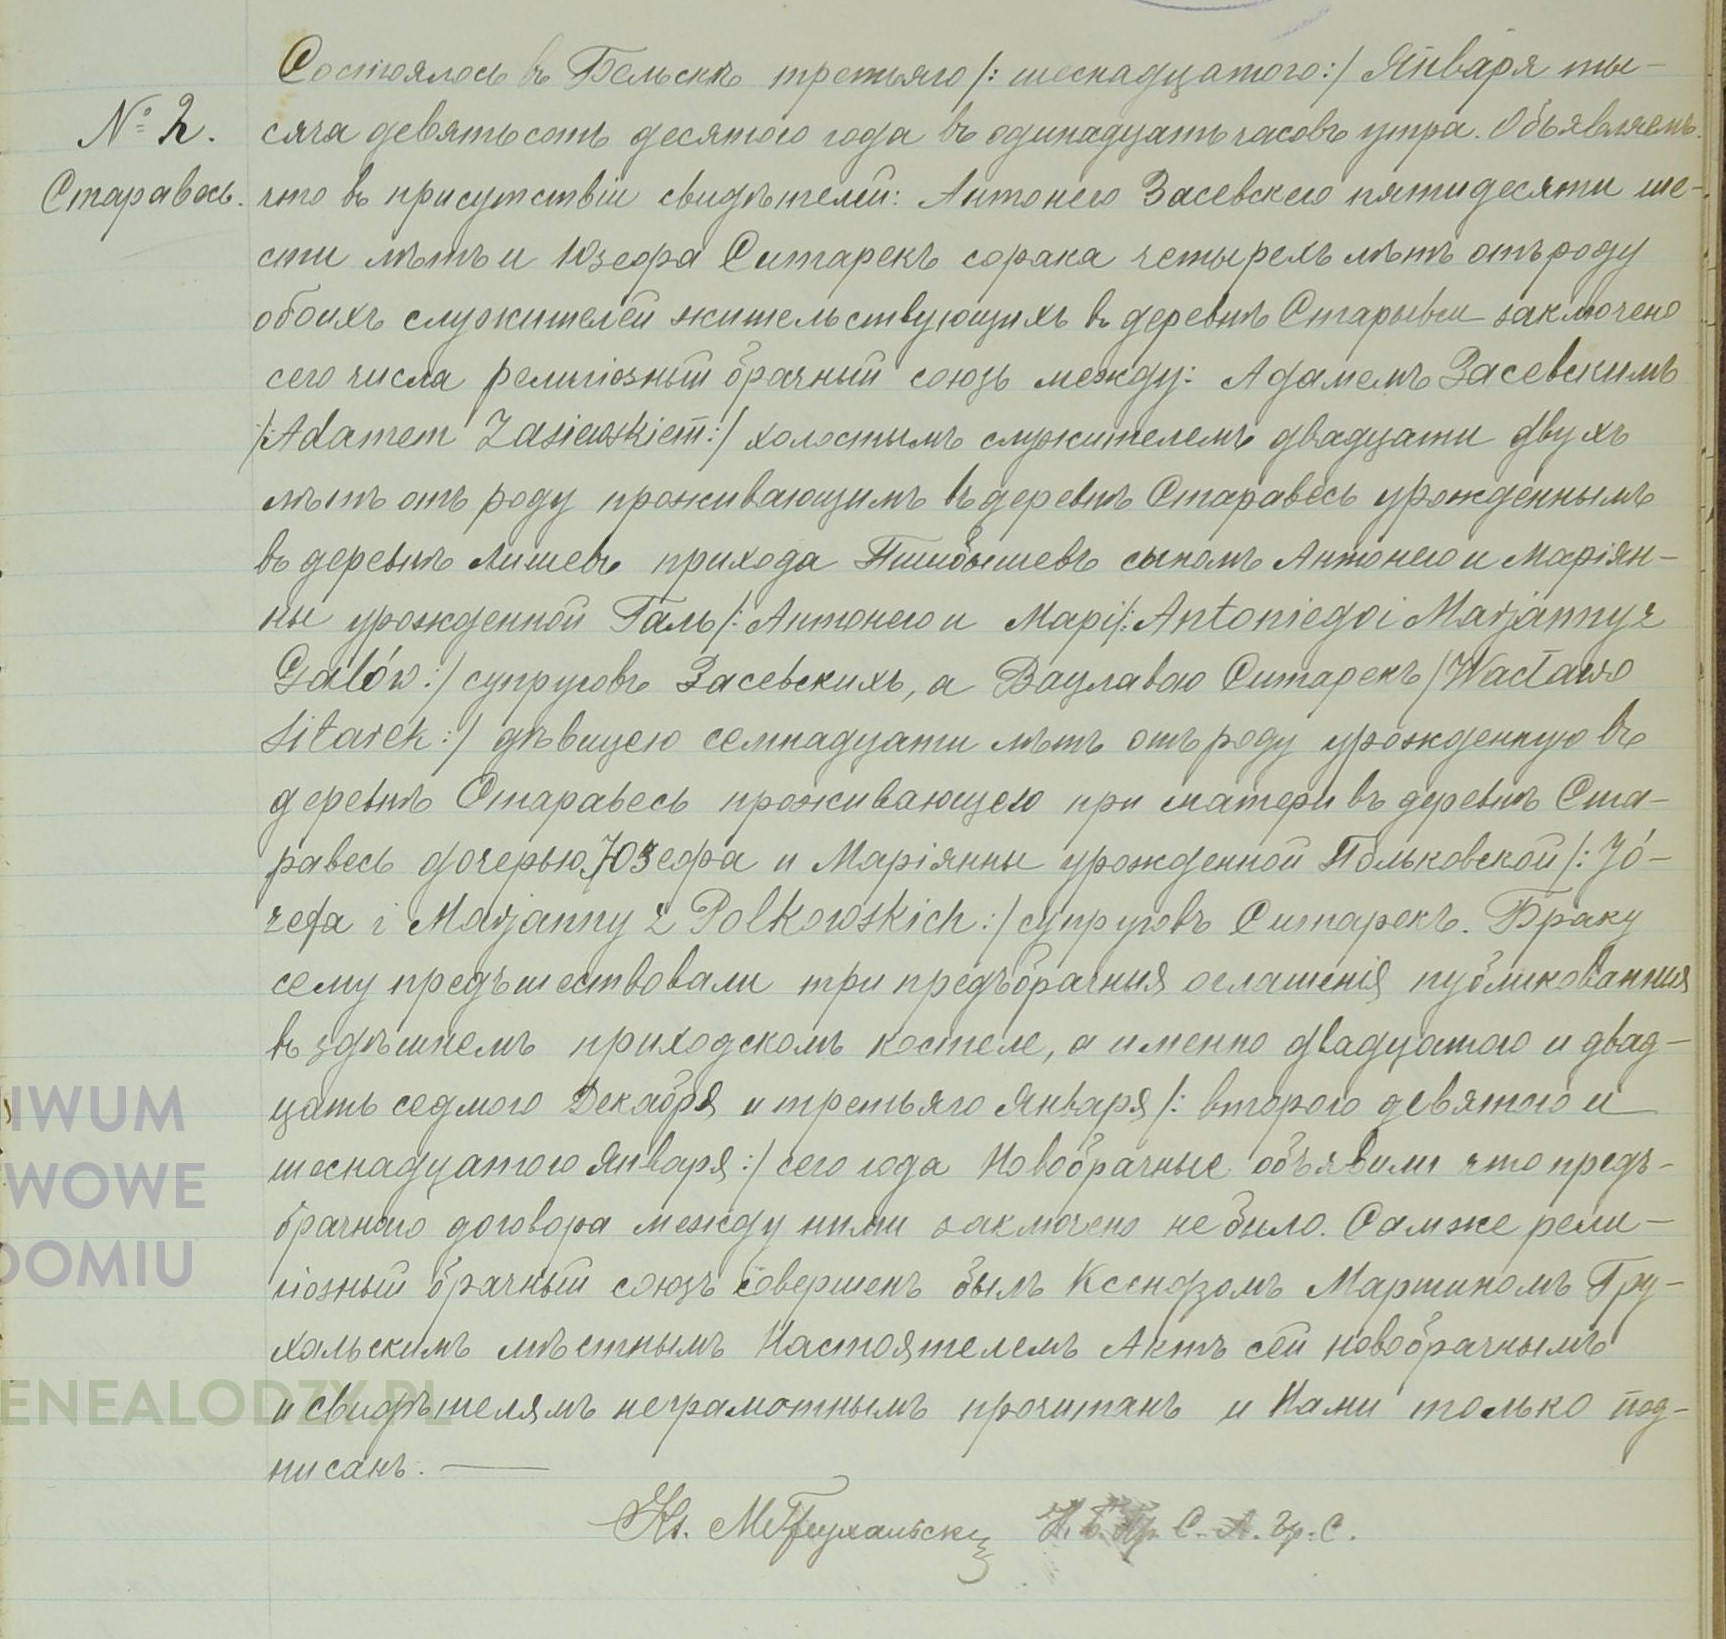 Состоялось въ Бельскѣ третьяго /: шеснадцатого :/ Января ты-
№ 2. сяча девятьсотъ десятого года въ одинадцать часовъ утра. Объявляемъ
Старавесь. что въ присутствіи свидѣтелей: Антонего Засевскего пятидесяти ше-
сти лѣтъ и Юзефа Ситарекъ сорака четырехъ лѣтъ отъ роду
обоихъ служителей жительствующихъ въ деревнѣ Старывси заключено
сего числа религіозный брачный союзъ между: Адамемъ Засевскимъ
/: Adamem Zasiewskiem :/ холостымъ служителемъ двадцати двухъ
лѣтъ отъ роду проживающимъ въ деревнѣ Старавесь урожденнымъ
въ деревнѣ Лишевъ прихода Пшибышевъ сыномъ Антонего и Маріян-
ны урожденной Галь /: Антонего и Марі /: Antoniego i Marjanny z
Galów :/ супруговъ Засевскихъ, а Вацлавою Ситарекъ / Wacławo
Sitarek :/ дѣвицею семнадцати лѣтъ отъ роду урожденную въ
деревнѣ Старавесь проживающею при матери въ деревнѣ Ста-
равесь дочерью Юзефа и Маріянны урожденной Польковской /: Jó-
zefa i Marjanny z Polkowskich :/ супруговъ Ситарекъ. Браку
сему предъшествовали три предъбрачныя оглашенія публикованныя
въ здѣшнемъ приходскомъ костеле, а именно двадцатого и двад-
цать седмого Декабря и третьяго Января /: второго девятого и
шеснадцатого Января :/ сего года Новобрачные объявили что предъ-
брачного договора между ними заключено не было. Самже рели-
гіозный брачный союзъ совершенъ былъ Ксендзомъ Мартиномъ Гру-
хальскимъ мѣстнымъ Настоятелемъ Актъ сей новобрачнымъ
и свидѣтелямъ неграмотнымъ прочитанъ и Нами только под-
писанъ.
Кс. М. Грухальски С. А. Гр. С.
IWUM
WOWE
DOMIU
ENEALODZY.PL